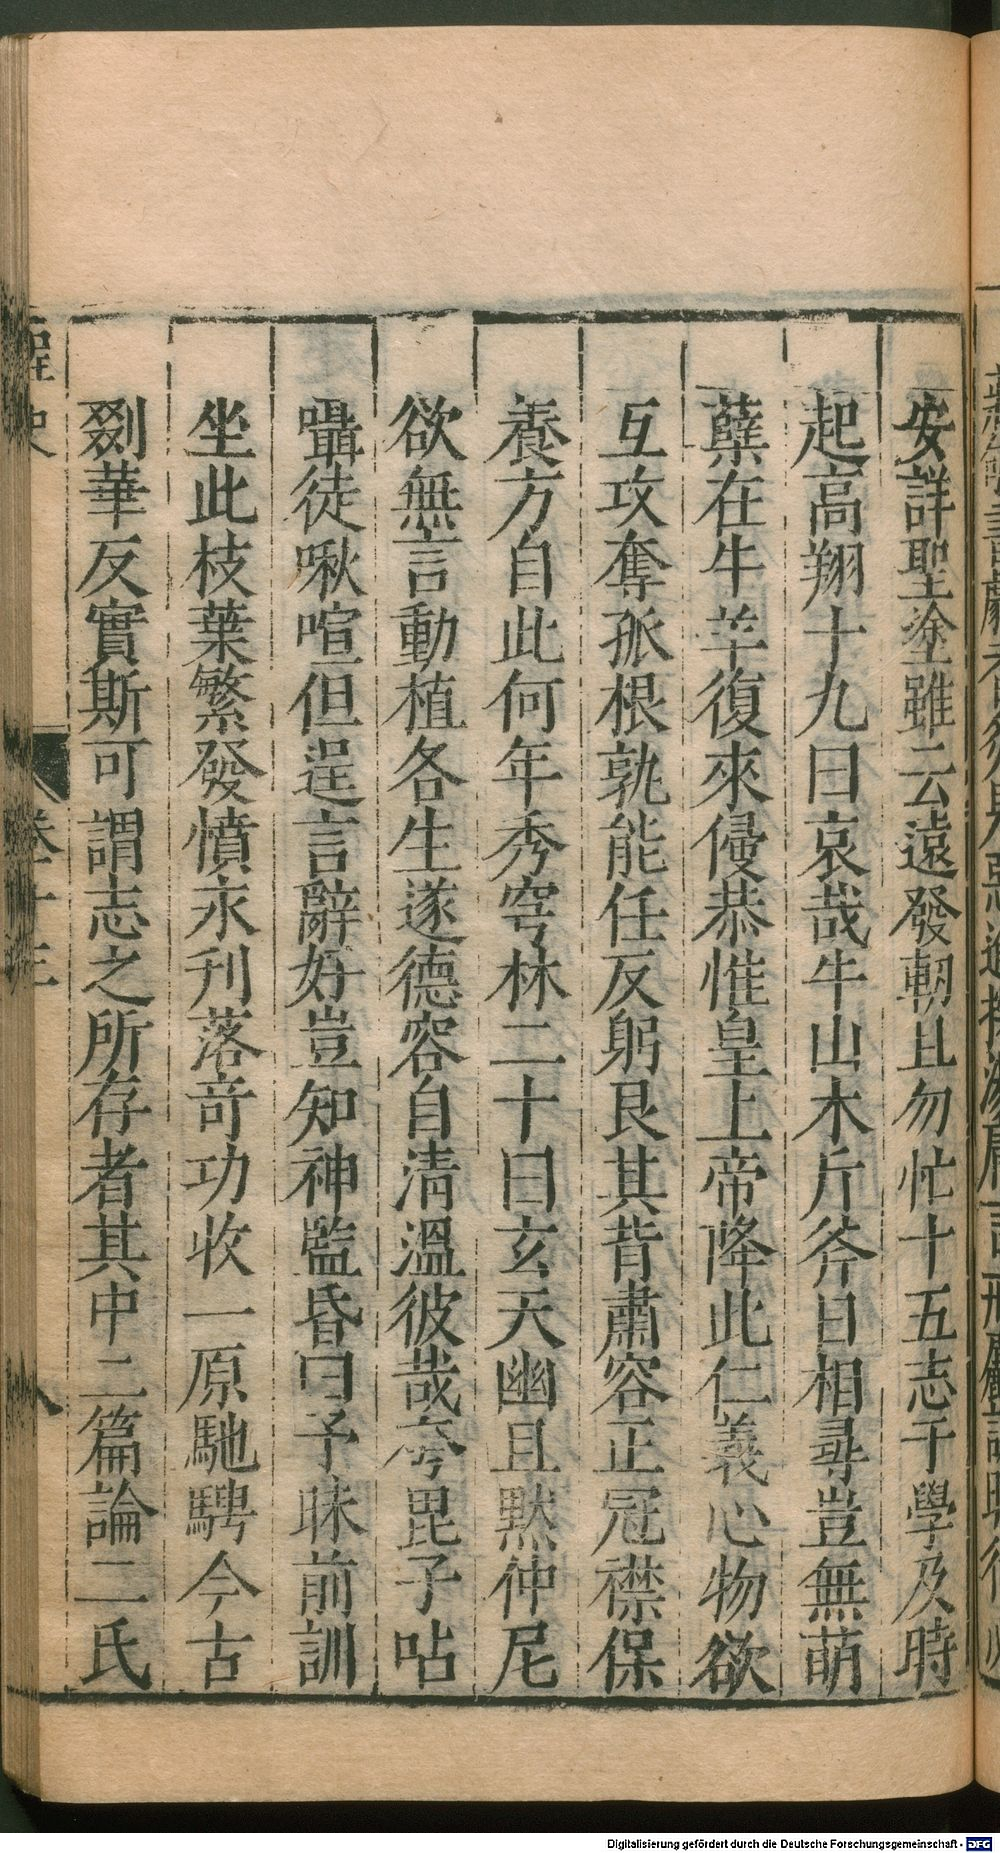 安詳聖塗雖云遠發軔且勿忙十五志于學及時
起高翔十九曰哀哉牛山木斤斧日相尋豈無萌
蘖在牛羊復來侵恭惟皇上帝降此仁義心物欲
互攻奪孤根孰能任反躬艮其背肅容正冠襟保
養方自此何年秀穹林二十曰玄天幽且默仲尼
欲無言動植各生遂德容自清溫彼哉夸毘子呫
囁徒啾喧但逞言辭好豈知神監昏曰予昧前訓
坐此枝葉繁發憤永刊落奇功收一原馳騁今古
剟華反實斯可謂志之所存者其中二篇論二氏
卷十三
八
Digitalisierung gefördert durch die Deutsche Forschungsgemeinschaft - DFG